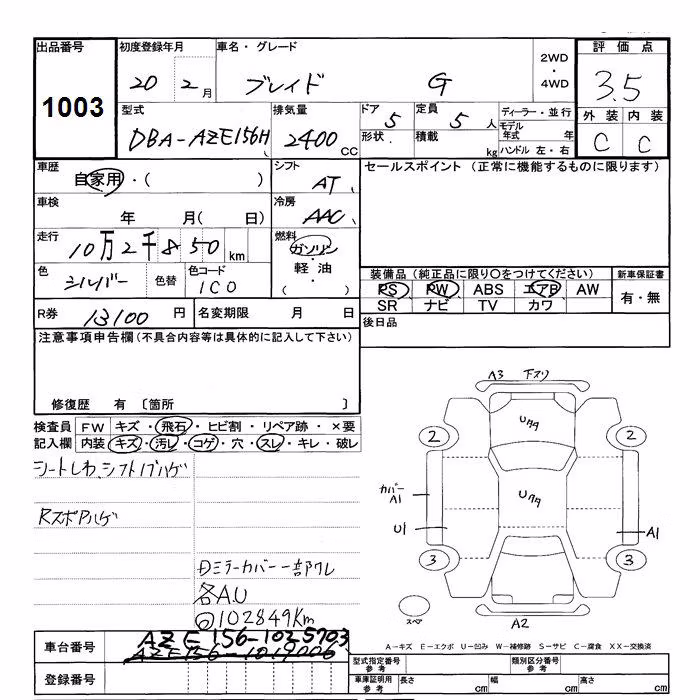 出品番号 初度登録年月 車名・グレード 2WD・4WD 評価点
1003 20 2月 ブレイド G 3.5
型式 排気量 ドア 5 定員 5人 ディーラー・並行 外装 内装
DBA-AZE156H 2400cc 形状 積載 kg モデル年式 年 C C
ハンドル 左・右
車歴 自家用・( ) シフト AT セールスポイント (正常に機能するものに限ります)
車検 年 月( 日) 冷房 AAC
走行 10万2千850km 燃料 ガソリン・軽油・( )
色 シルバー 色替 色コード 1C0
装備品 (純正品に限り〇をつけてください) 新車保証書
PS PW ABS エアB AW 有・無
SR ナビ TV カワ
R券 13100円 名変期限 月 日 後日品
注意事項申告欄(不具合内容等は具体的に記入して下さい)
修復歴 有 〔箇所 〕
検査員記入欄 FW キズ・飛石・ヒビ割・リペア跡・×要
内装 キズ・汚レ・コゲ・穴・スレ・キレ・破レ
シートしわ、シフトノブハゲ
RスポPハゲ
Dミラーカバー一部ワレ
各A.U
◎102849Km
車台番号 AZE156-1025703
AZE156-1019006
登録番号
A3 下スリ
Uクタ
2 2
Uクタ
カバーA1
U1 A1
3 3
スペア
A2
A-キズ E-エクボ U-凹み W-補修跡 S-サビ C-腐食 XX-交換済
型式指定番号 参考 類別区分番号 参考
車庫証明用 参考 長さ cm 幅 cm 高さ cm